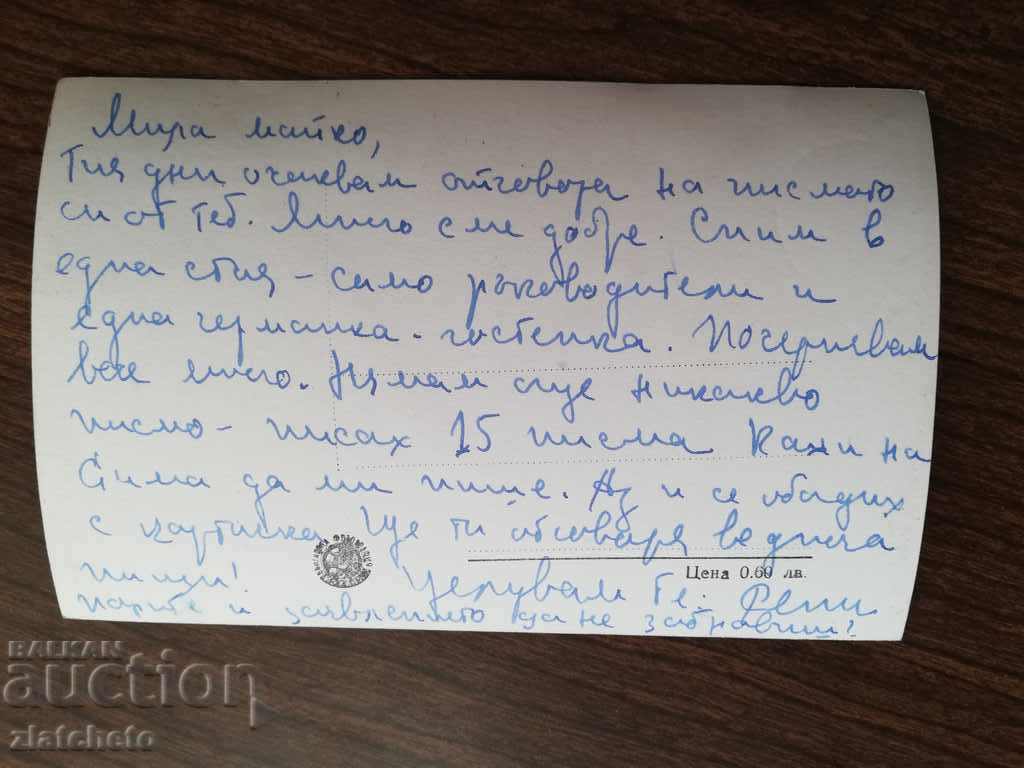 Мила майко,
Тия дни очаквам отговора на писмото
си от теб. Много сме добре. Спим в
една стая - само ръководители и
една германка - гостенка. Почернявам
вече много. Нямам още никакво
писмо - писах 15 писма Кажи на
Сима да ми пише. Аз и се обадих
с картичка Ще ти отговоря веднага
пиши! Целувам те: Лени
парите и заявлението да не забравиш!
Цена 0.60 лв.
BALKAN
auction
zlatcheto